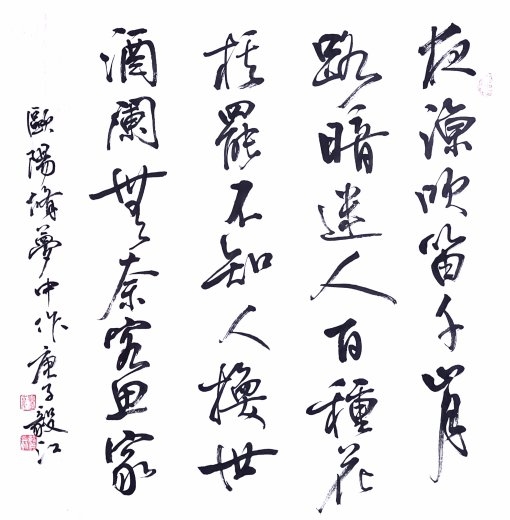 夜涼吹笛千山月
路暗迷人百種花
棋罷不知人換世
酒闌無奈客思家
歐陽脩夢中作庚子毅江